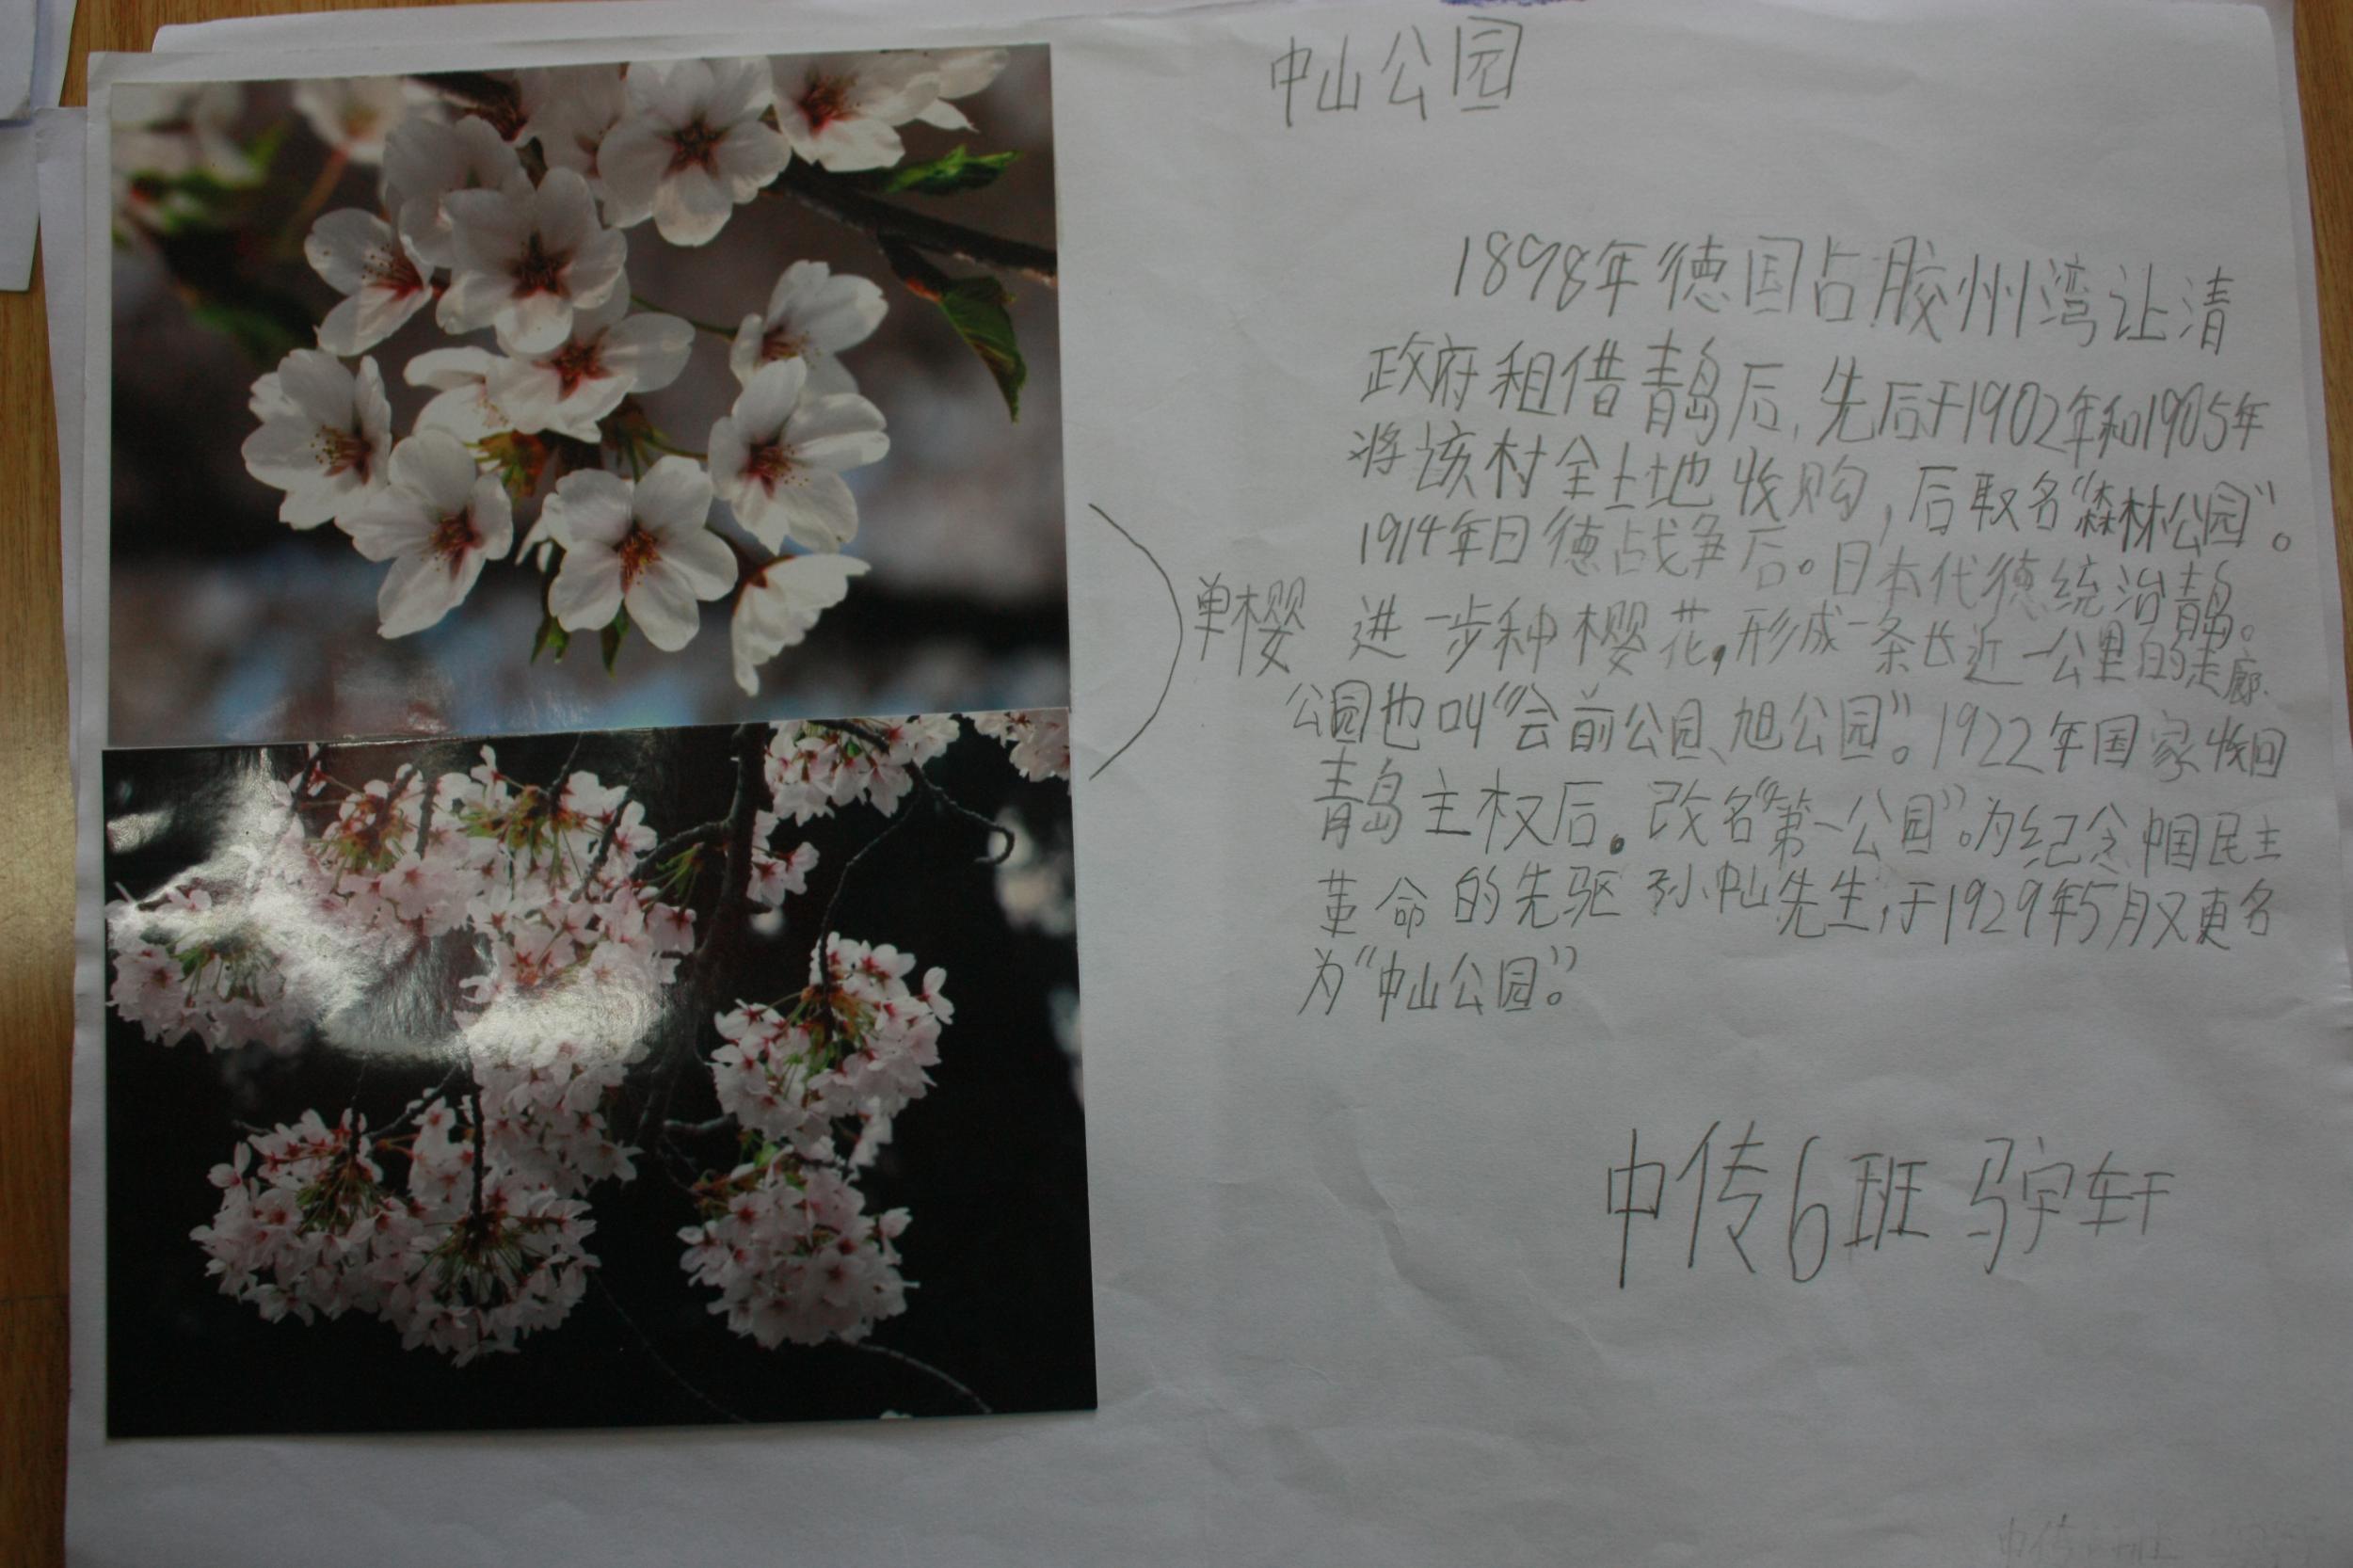 中山公园
1898年德国占胶州湾让清
政府租借青岛后,先后于1902年和1905年
将该村全土地收购,后取名“森林公园”。
1914年日德战争后。日本代德统治青岛。
进一步种樱花,形成一条长近一公里的走廊.
公园也叫“会前公园、旭公园”。1922年国家收回
青岛主权后。改名“第一公园”。为纪念中国民主
革命的先驱孙中山先生,于1929年5月又更名
为“中山公园”。
单樱
中传6班 宇轩
中传